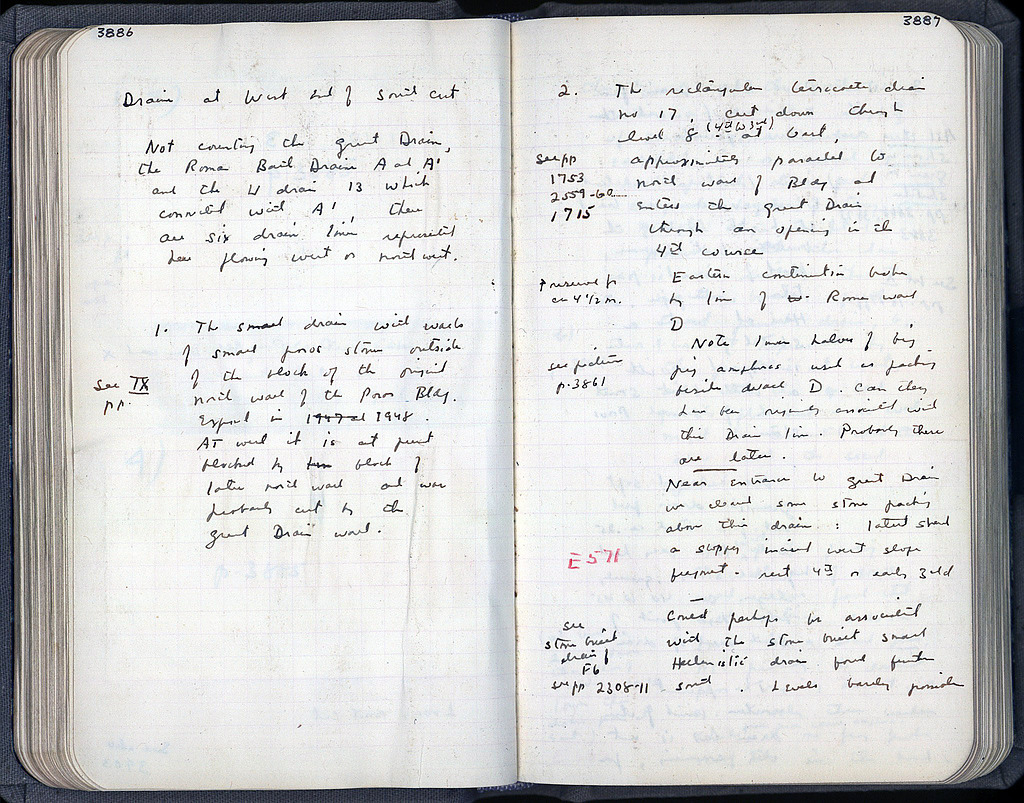 3886
Drains at West End of South cut
Not counting the great Drain,
the Roman Bath Drains A and A'
and the W drain 13 which
connected with A', there
are six drain lines represented
here flowing west or northwest.
1. The small drain with walls
of small poros stones outside
of the block of the original
north wall of the Poros Bldg.
see IX
pp.
Exposed in 1947 and 1948.
At west it is at present
blocked by block of
later north wall and was
probably cut by the
great Drain wall.
3887
2. The rectangular terracotta drain
no 17, cut down through
level 8 (4th W 3rd) at least,
approximately parallel to
see pp
1753
2559-60
1715
north wall of Bldg and
enters the great Drain
through an opening in the
4th course
Preserved for
ca 4 1/2 m.
Eastern continuation broken
by line of Roman wall
D
Note lower halves of big
see picture
p. 3861
amphoras used as packing
beside drain D. Can they
have been originally associated with
this Drain line. Probably these
are later.
Near entrance to great Drain
we cleared some stone packing
above this drain : latest sherd
E 571
a sloppy incised west slope
fragment. next 4th or early 3rd
Could perhaps be associated
see
stone built
drain of
F6
see pp 2308-11
with the stone built small
Hellenistic drain found further
south. Levels barely possible